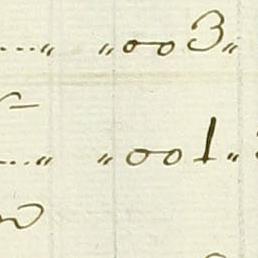 ...." "003"
...." "001"